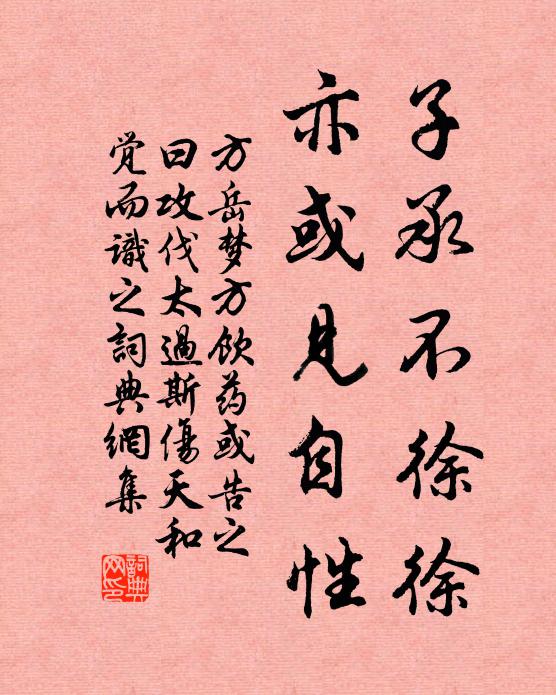 子承不徐徐
亦或见自性
方岳梦方饮药或告之
曰攻伐太過斯傷天和
觉而識之詞典網集
詞典
网印